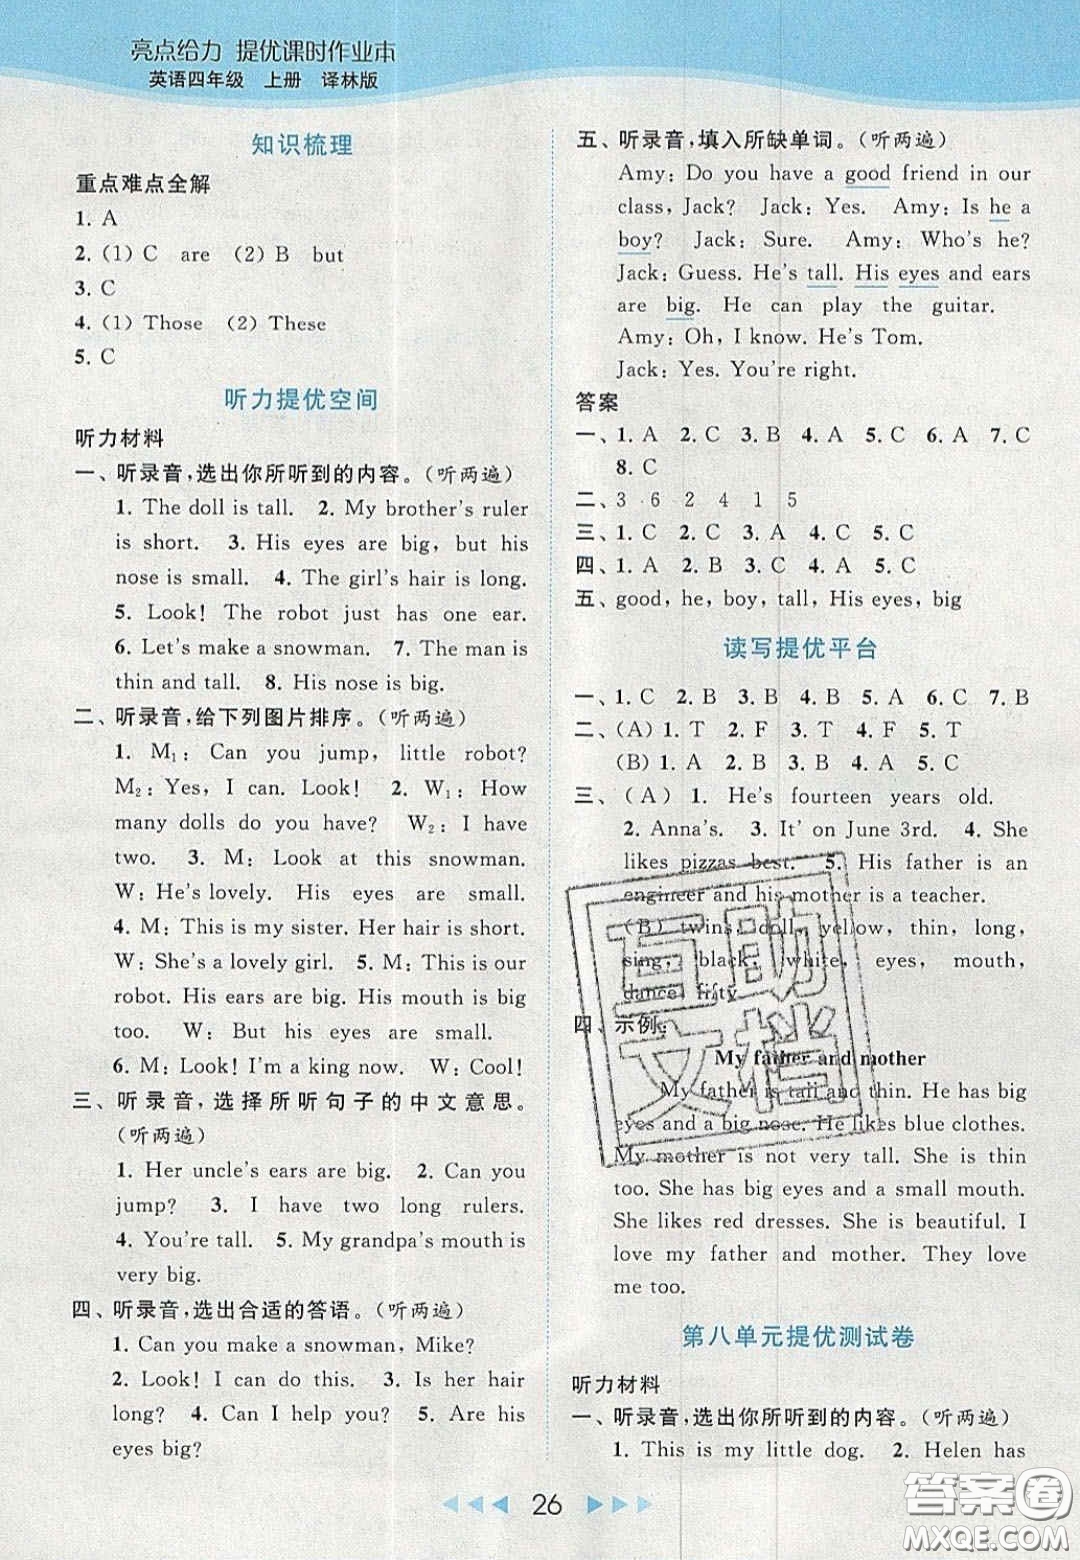 亮点给力 提优课时作业本
英语四年级 上册 译林版
知识梳理
重点难点全解
1. A
2. (1) C are (2) B but
3. C
4. (1) Those (2) These
5. C
听力提优空间
听力材料
一、听录音,选出你所听到的内容。(听两遍)
1. The doll is tall. 2. My brother's ruler
is short. 3. His eyes are big, but his
nose is small. 4. The girl's hair is long.
5. Look! The robot just has one ear.
6. Let's make a snowman. 7. The man is
thin and tall. 8. His nose is big.
二、听录音,给下列图片排序。(听两遍)
1. M₁: Can you jump, little robot?
M₂: Yes, I can. Look! 2. W₁: How
many dolls do you have? W₂: I have
two. 3. M: Look at this snowman.
W: He's lovely. His eyes are small.
4. M: This is my sister. Her hair is short.
W: She's a lovely girl. 5. M: This is our
robot. His ears are big. His mouth is big
too. W: But his eyes are small.
6. M: Look! I'm a king now. W: Cool!
三、听录音,选择所听句子的中文意思。
(听两遍)
1. Her uncle's ears are big. 2. Can you
jump? 3. I have two long rulers.
4. You're tall. 5. My grandpa's mouth is
very big.
四、听录音,选出合适的答语。(听两遍)
1. Can you make a snowman, Mike?
2. Look! I can do this. 3. Is her hair
long? 4. Can I help you? 5. Are his
eyes big?
五、听录音,填入所缺单词。(听两遍)
Amy: Do you have a good friend in our
class, Jack? Jack: Yes. Amy: Is he a
boy? Jack: Sure. Amy: Who's he?
Jack: Guess. He's tall. His eyes and ears
are big. He can play the guitar.
Amy: Oh, I know. He's Tom.
Jack: Yes. You're right.
答案
一、1. A 2. C 3. B 4. A 5. C 6. A 7. C
8. C
二、3 6 2 4 1 5
三、1. C 2. C 3. A 4. C 5. C
四、1. A 2. B 3. C 4. A 5. C
五、good, he, boy, tall, His eyes, big
读写提优平台
一、1. C 2. B 3. B 4. B 5. A 6. C 7. B
二、(A) 1. T 2. F 3. T 4. F 5. T
(B) 1. A 2. B 3. B 4. A 5. C
三、(A) 1. He's fourteen years old.
2. Anna's. 3. It' on June 3rd. 4. She
likes pizzas best. 5. His father is an
engineer and his mother is a teacher.
(B) twins, doll, yellow, thin, long,
sing, black, white, eyes, mouth,
dance, fifty
四、示例:
My father and mother
My father is tall and thin. He has big
eyes and a big nose. He likes blue clothes.
My mother is not very tall. She is thin
too. She has big eyes and a small mouth.
She likes red dresses. She is beautiful. I
love my father and mother. They love
me too.
第八单元提优测试卷
听力材料
一、听录音,选出你所听到的内容。(听两遍)
1. This is my little dog. 2. Helen has
26
互助
文档
答案圈
MXQE.COM